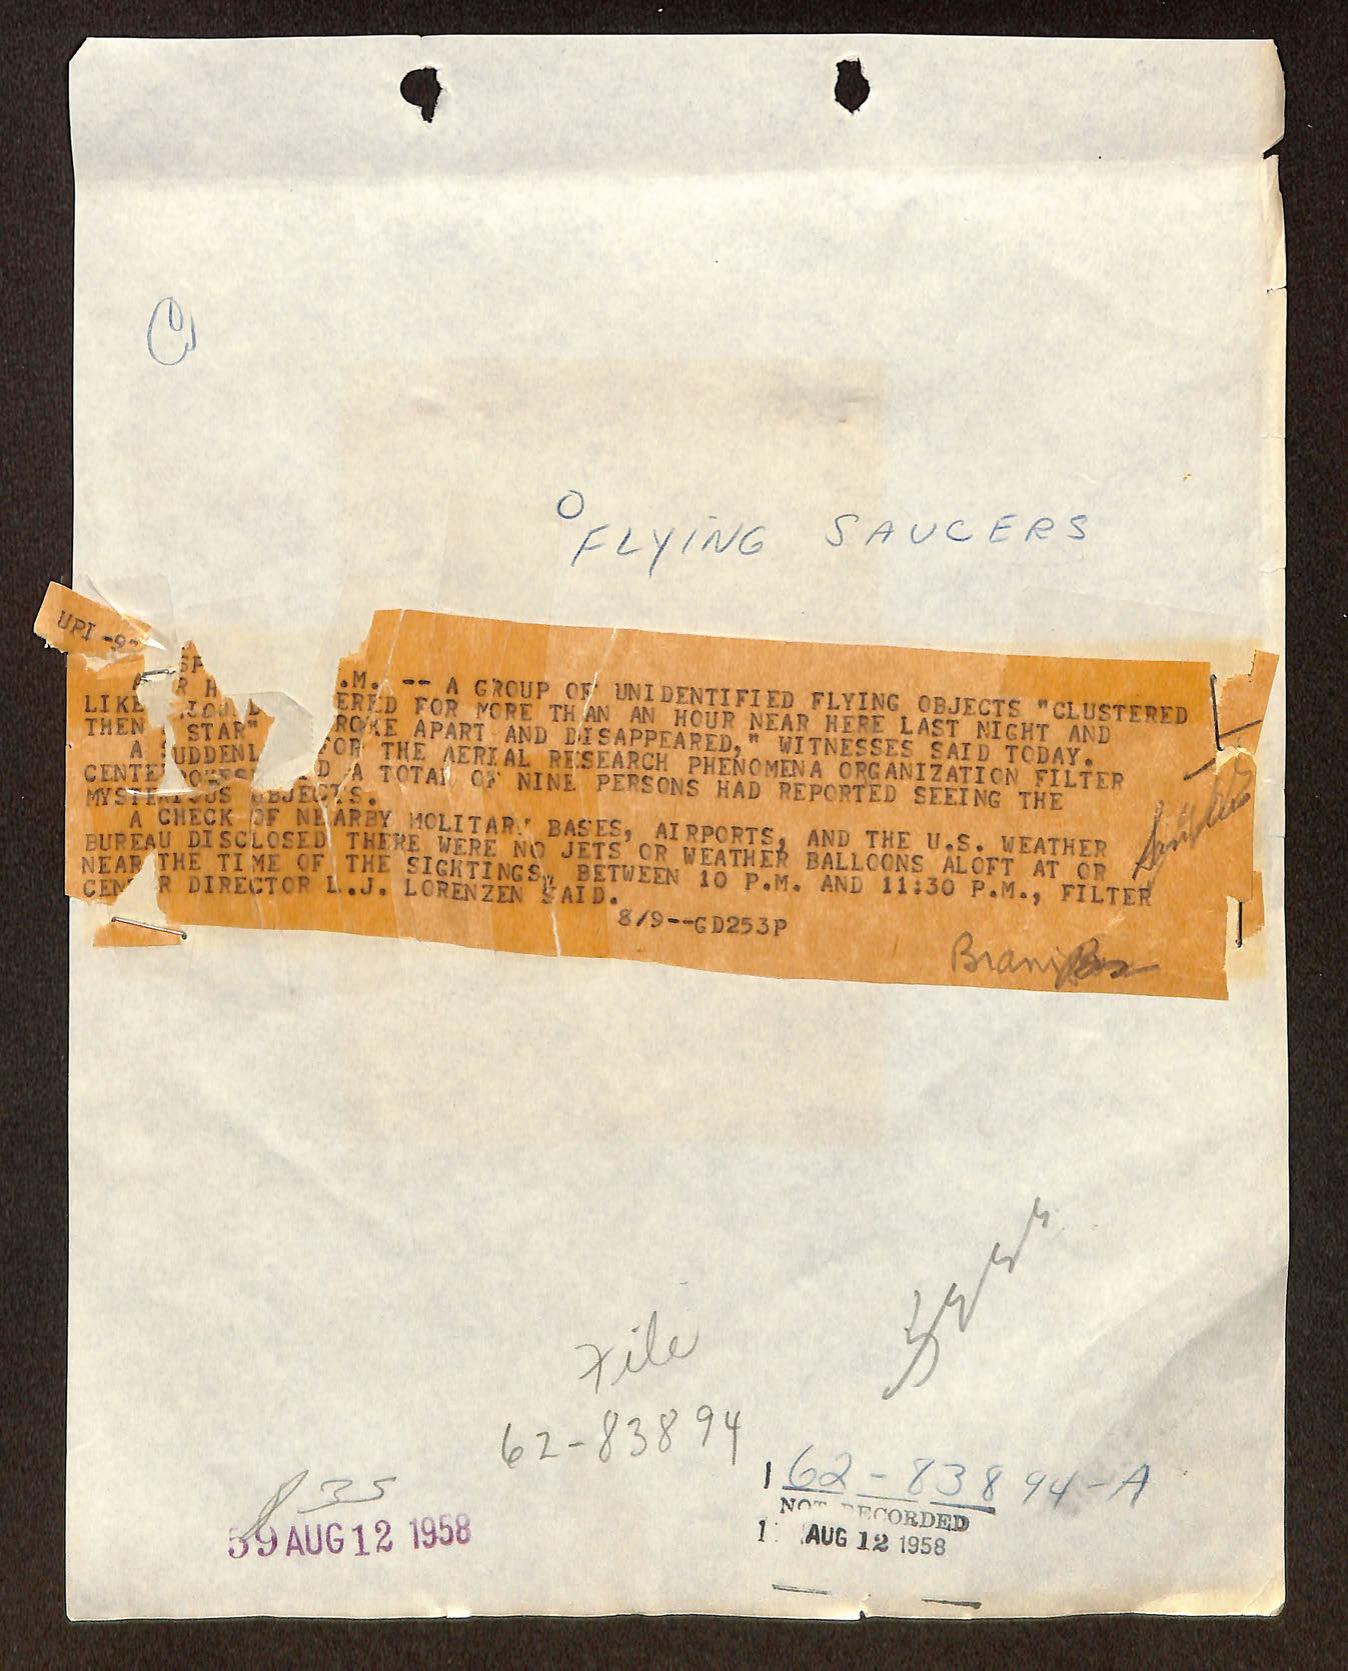 FLYING SAUCERS
UPI -9
SP
R H .M. -- A GROUP OF UNIDENTIFIED FLYING OBJECTS "CLUSTERED
LIKE ERED FOR MORE THAN AN HOUR NEAR HERE LAST NIGHT AND
THEN STAR" ROKE APART AND DISAPPEARED," WITNESSES SAID TODAY.
A UDDENL FOR THE AERIAL RESEARCH PHENOMENA ORGANIZATION FILTER
CENTE D A TOTAL OF NINE PERSONS HAD REPORTED SEEING THE
MYSTERIOUS OBJECTS.
A CHECK OF NEARBY MOLITARY BASES, AIRPORTS, AND THE U.S. WEATHER
BUREAU DISCLOSED THERE WERE NO JETS OR WEATHER BALLOONS ALOFT AT OR
NEAR THE TIME OF THE SIGHTINGS, BETWEEN 10 P.M. AND 11:30 P.M., FILTER
CENTER DIRECTOR L.J. LORENZEN SAID.
8/9--GD253P
File
62-83894
162-83894-A
NOT RECORDED
1 AUG 12 1958
835
59 AUG 12 1958